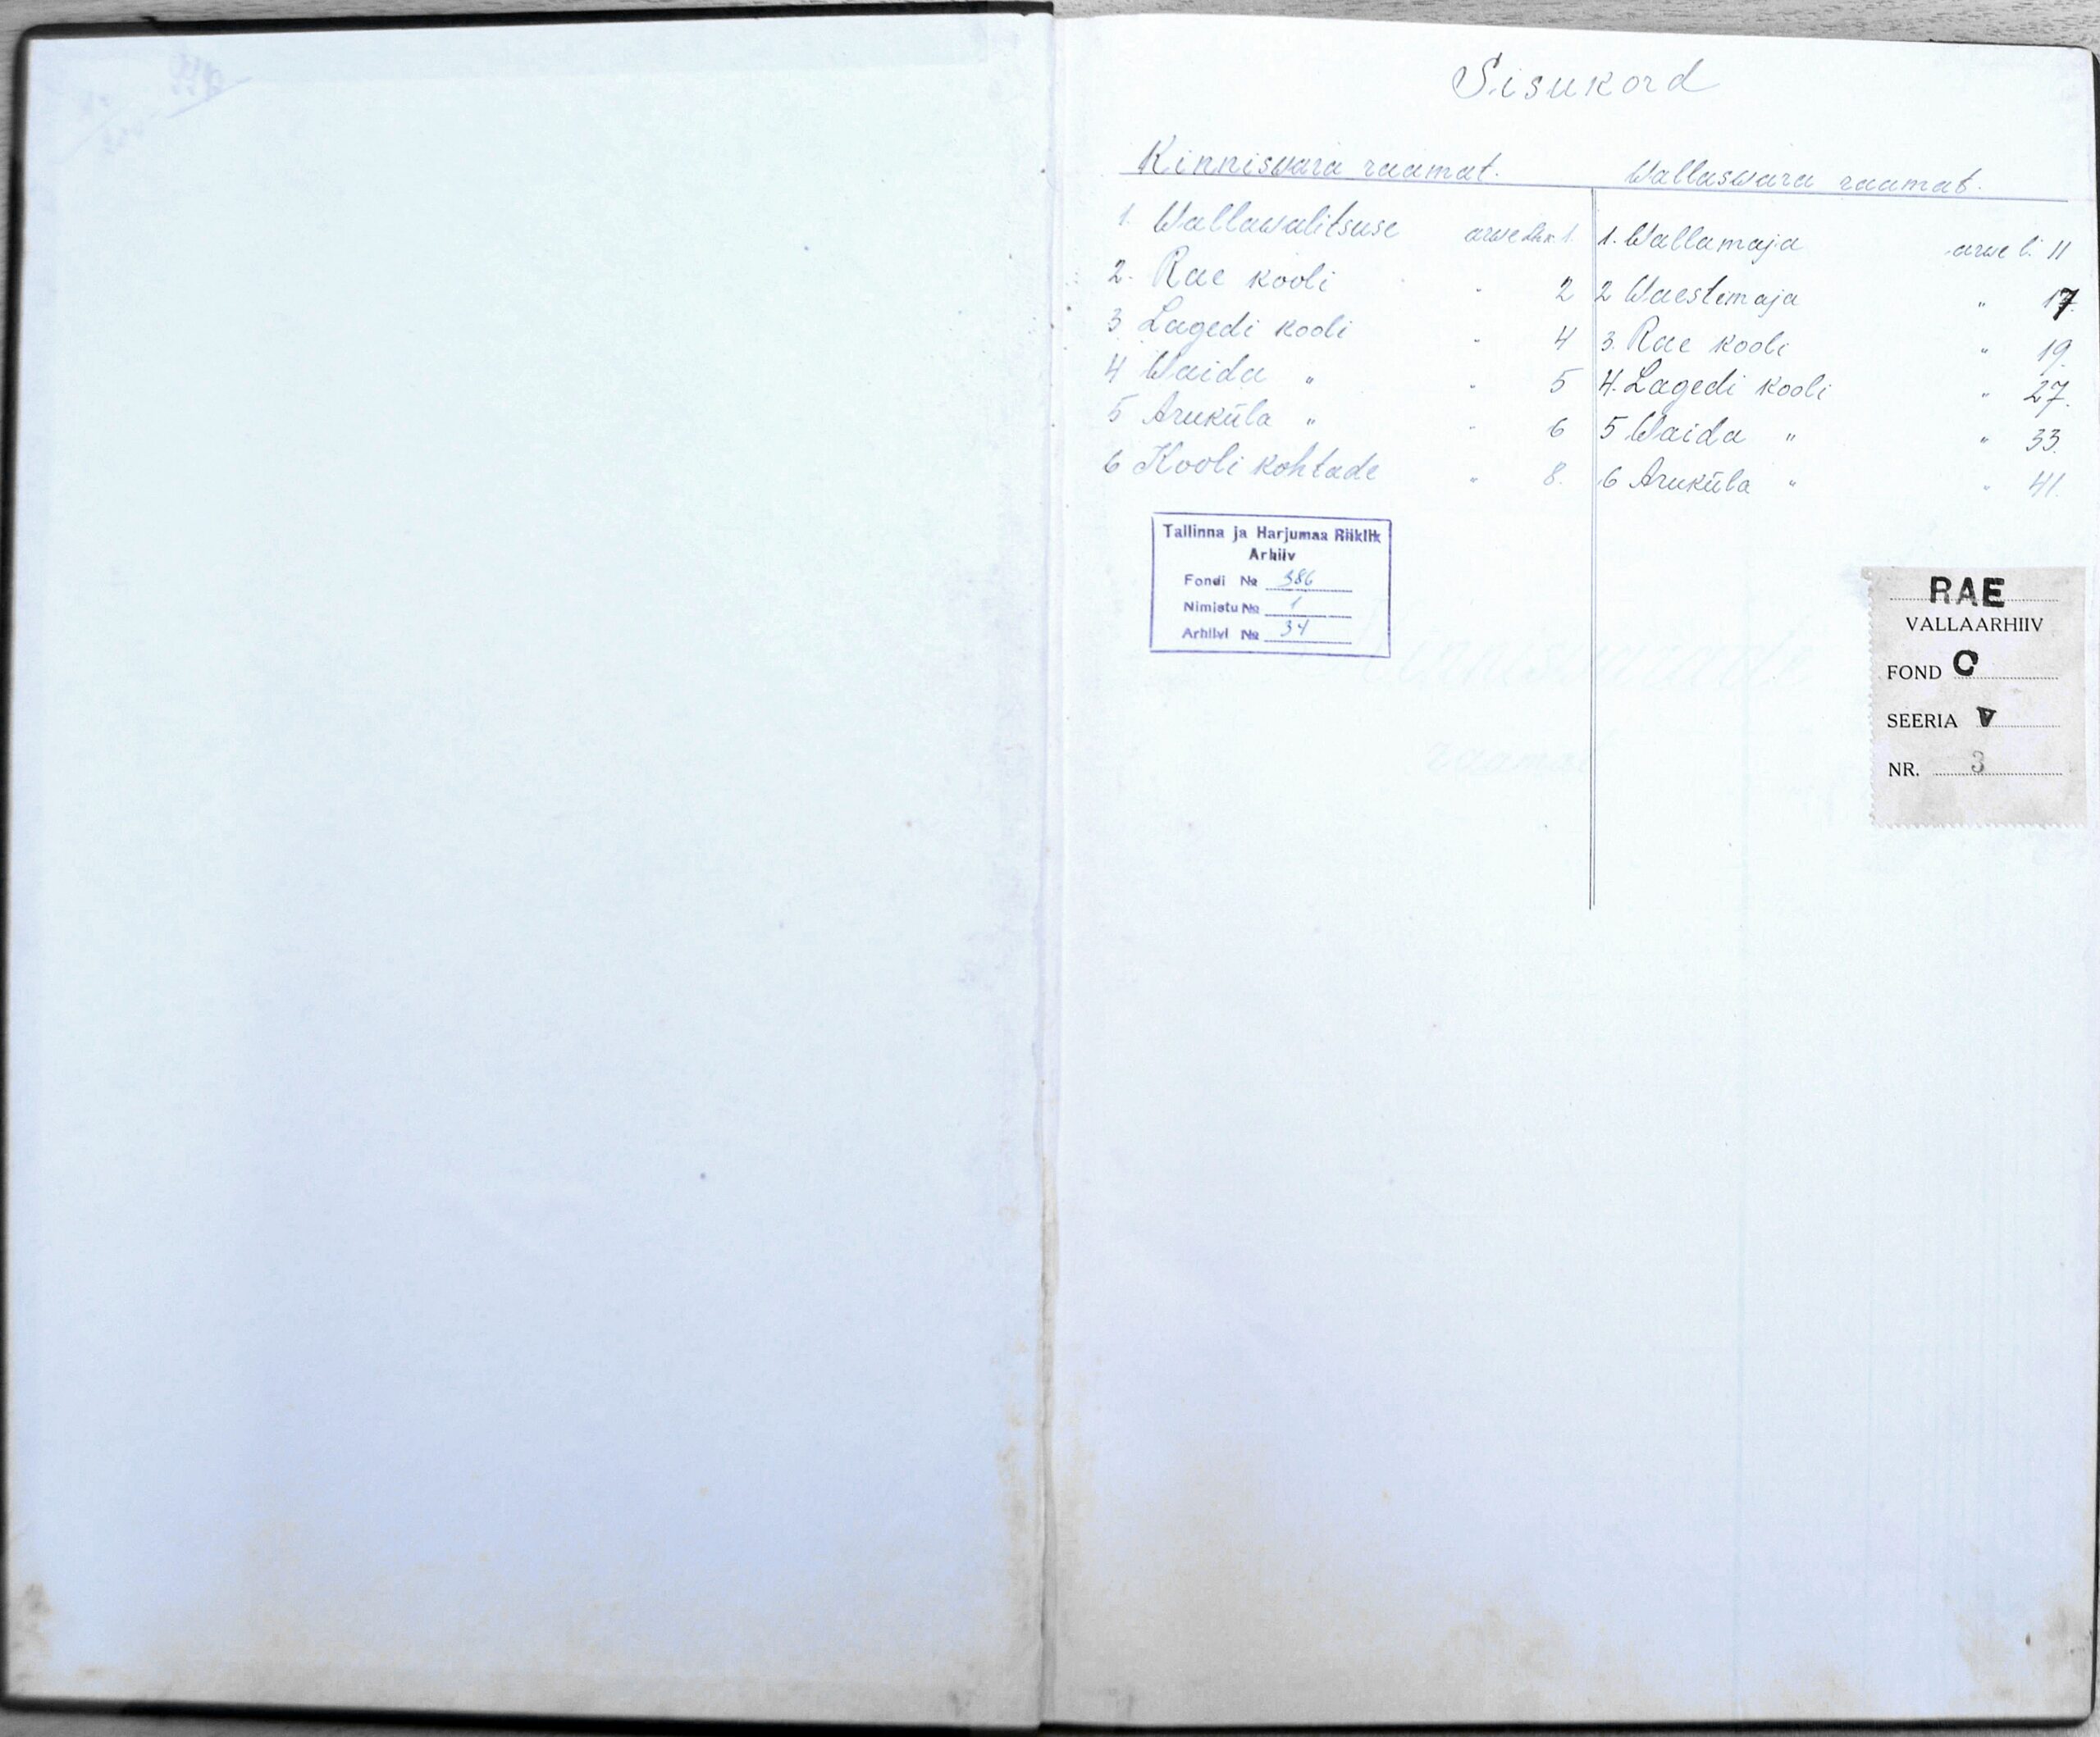 Sisukord
Kinniswara raamat.
1. Wallawalitsuse arwe lhk. 1.
2. Rae kooli " 2
3 Lagedi kooli " 4
4 Waida " " 5
5 Aruküla " " 6
6 Kooli kohtade " 8.
Wallaswara raamat.
1. Wallamaja arwe l. 11
2 Waestemaja " 17.
3. Rae kooli " 19.
4. Lagedi kooli " 27.
5 Waida " " 33.
6 Aruküla " " 41.
Tallinna ja Harjumaa Riiklik
Arhiiv
Fondi № 386
Nimistu № 1
Arhiivi № 34
RAE
VALLAARHIIV
FOND C
SEERIA V
NR. 3
raamat